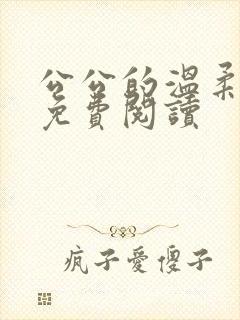 公公的温柔
免費閱讀
疯子愛傻子